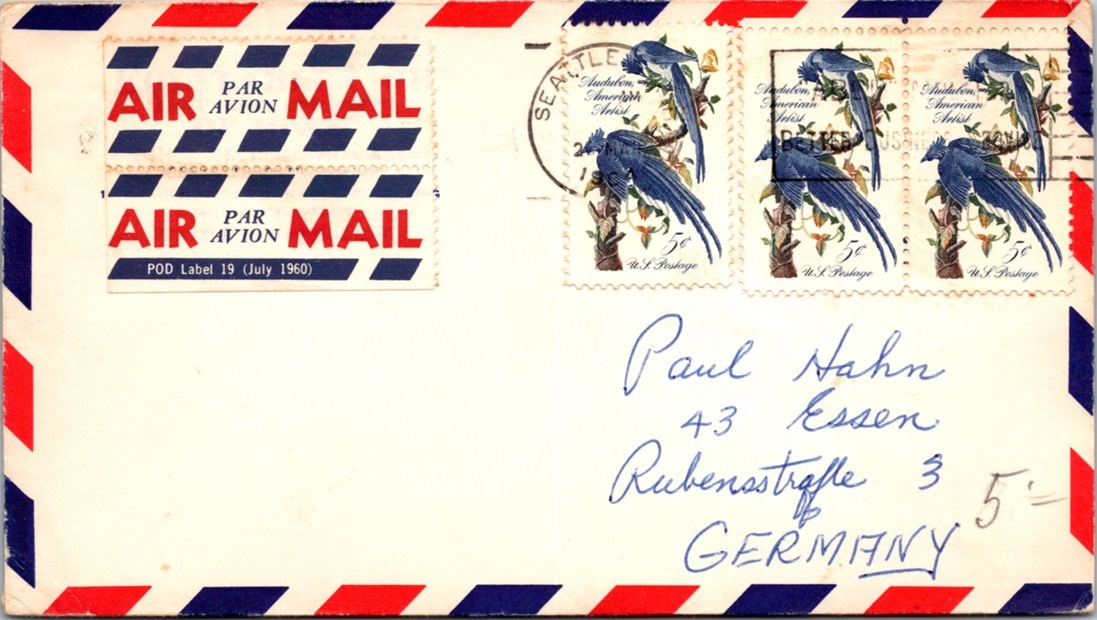 AIR PAR AVION MAIL
AIR PAR AVION MAIL
POD Label 19 (July 1960)
SEATTLE
MAR
1964
Audubon,
American
Artist
5¢
U.S. Postage
Audubon,
American
Artist
5¢
U.S. Postage
Audubon,
American
Artist
5¢
U.S. Postage
BETTER BUSINESS
Paul Hahn
43 Essen
Rubensstraße 3
GERMANY
5'=